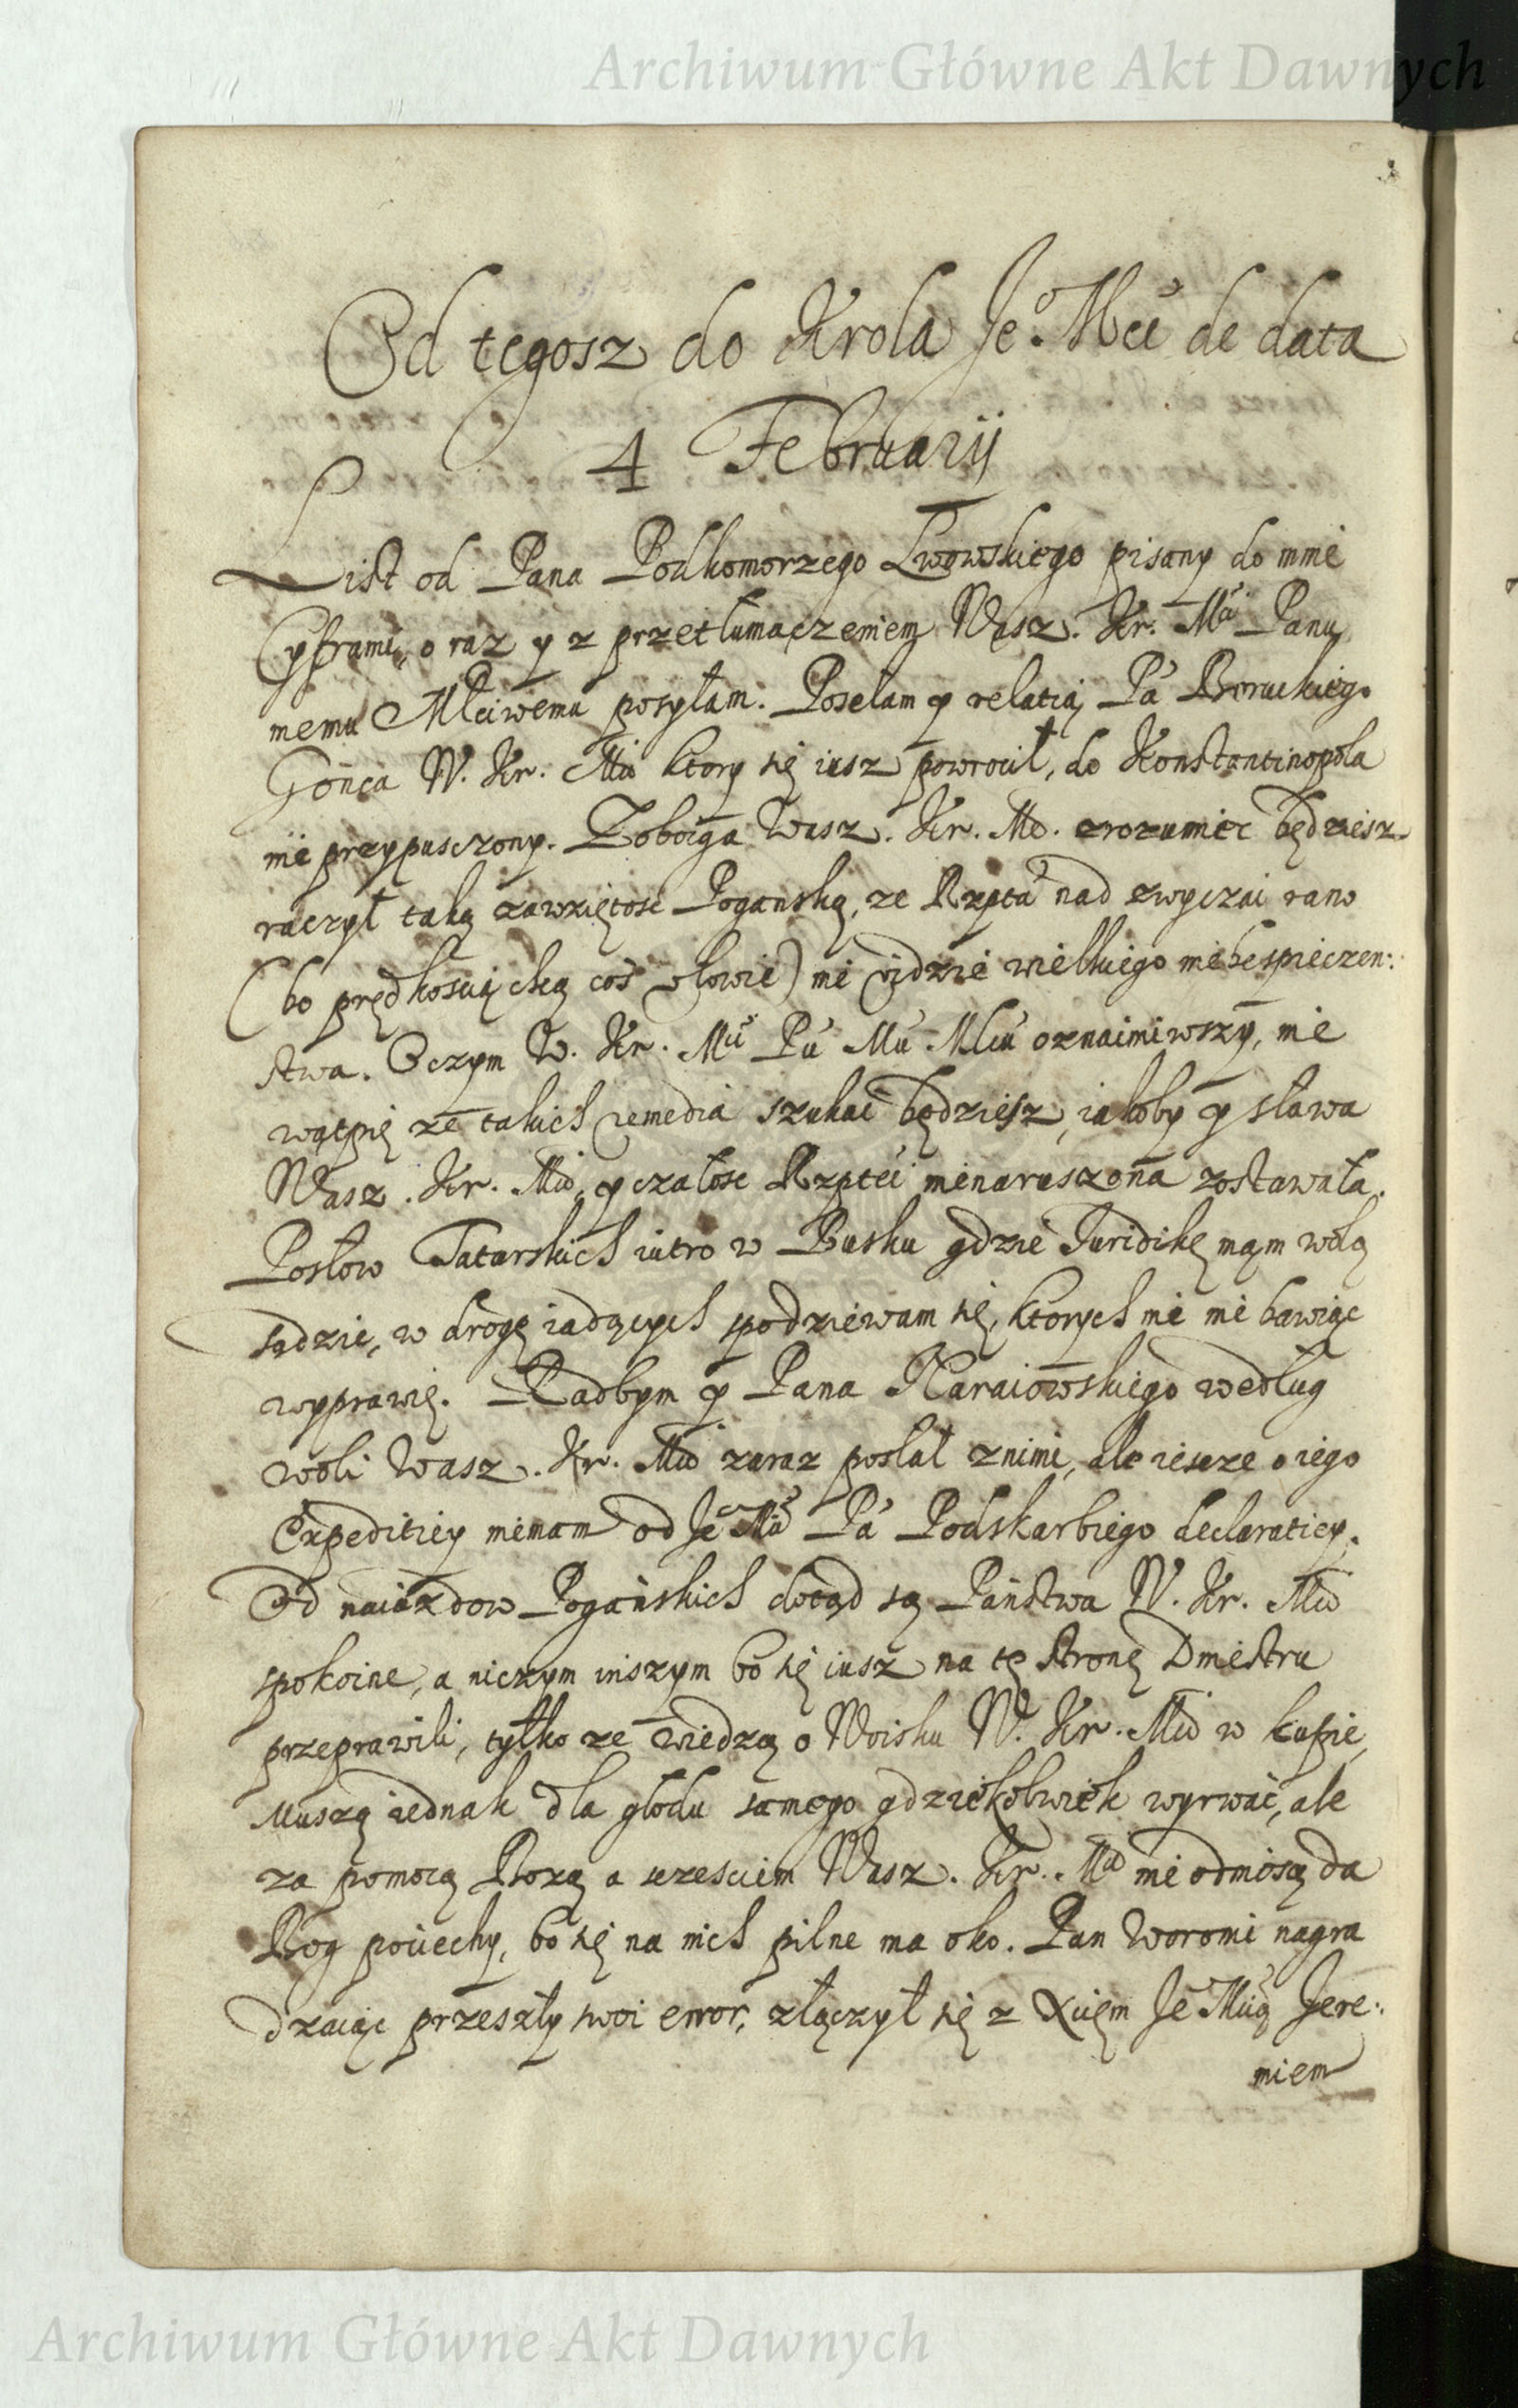 Archiwum Główne Akt Dawnych
Od tegosz do Krola Je° Mći de data
4 Februarij
List od Pana Podkomorzego Lwowskiego pisany do mnie
Cyframi, oraz y z przetłumaczeniem Wasz. Kr. Mći Panu
memu Młciwemu posyłam. Poselam y relatią Pa
Gońca W. Kr. Mći ktory się iusz powrocił, do Konstantinopola
nie przypusczony. Z oboiga Wasz. Kr. Mć. zrozumiec będziesz
raczył taką zawziętosc Poganską, ze Rzpta nad zwyczai rano
(bo prędkoscią chcą cos włowic) nie uidzie wielkiego niebespieczen:
stwa. Oczym W. Kr. Mći Pu Mu Młciu oznaimiwszy, nie
wątpię ze takich remedia szukać będziesz, iakoby y sława
Wasz. Kr. Mći, y czałosc Rzptei nienarusczona zostawała.
Posłow Tatarskich iutro w Busku gdzie Juridikę mąm wolą
sądzic, w drogę iadących spodziewam się, ktorych nie nie bawiąc
wyprawię. Radbym y Pana Naraiowskiego według
woli Wasz. Kr. Mći zaraz posłał z nimi, ale iescze o iego
Expeditiey niemam od Je Mći Pa Podskarbiego declaratiey.
Od naiazdow Pogańskich dotąd są Państwa W. Kr. Mći
spokoine, a niczym inszym bo się iusz na tę stronę Dniestru
przeprawili, tylko ze wiedzą o Woisku W. Kr. Mći w kupie,
Muszą iednak dla głodu samego gdziekolwiek wyrwać, ale
za pomocą Bozą a sczesciem Wasz. Kr. Mći nie odniosą da
Bog pociechy, bo się na nich pilne ma oko. Pan Woroni nagra
dzaiąc przeszły swoi error, złączył się z Xciem Je Mcią Jere:
miem
Archiwum Główne Akt Dawnych